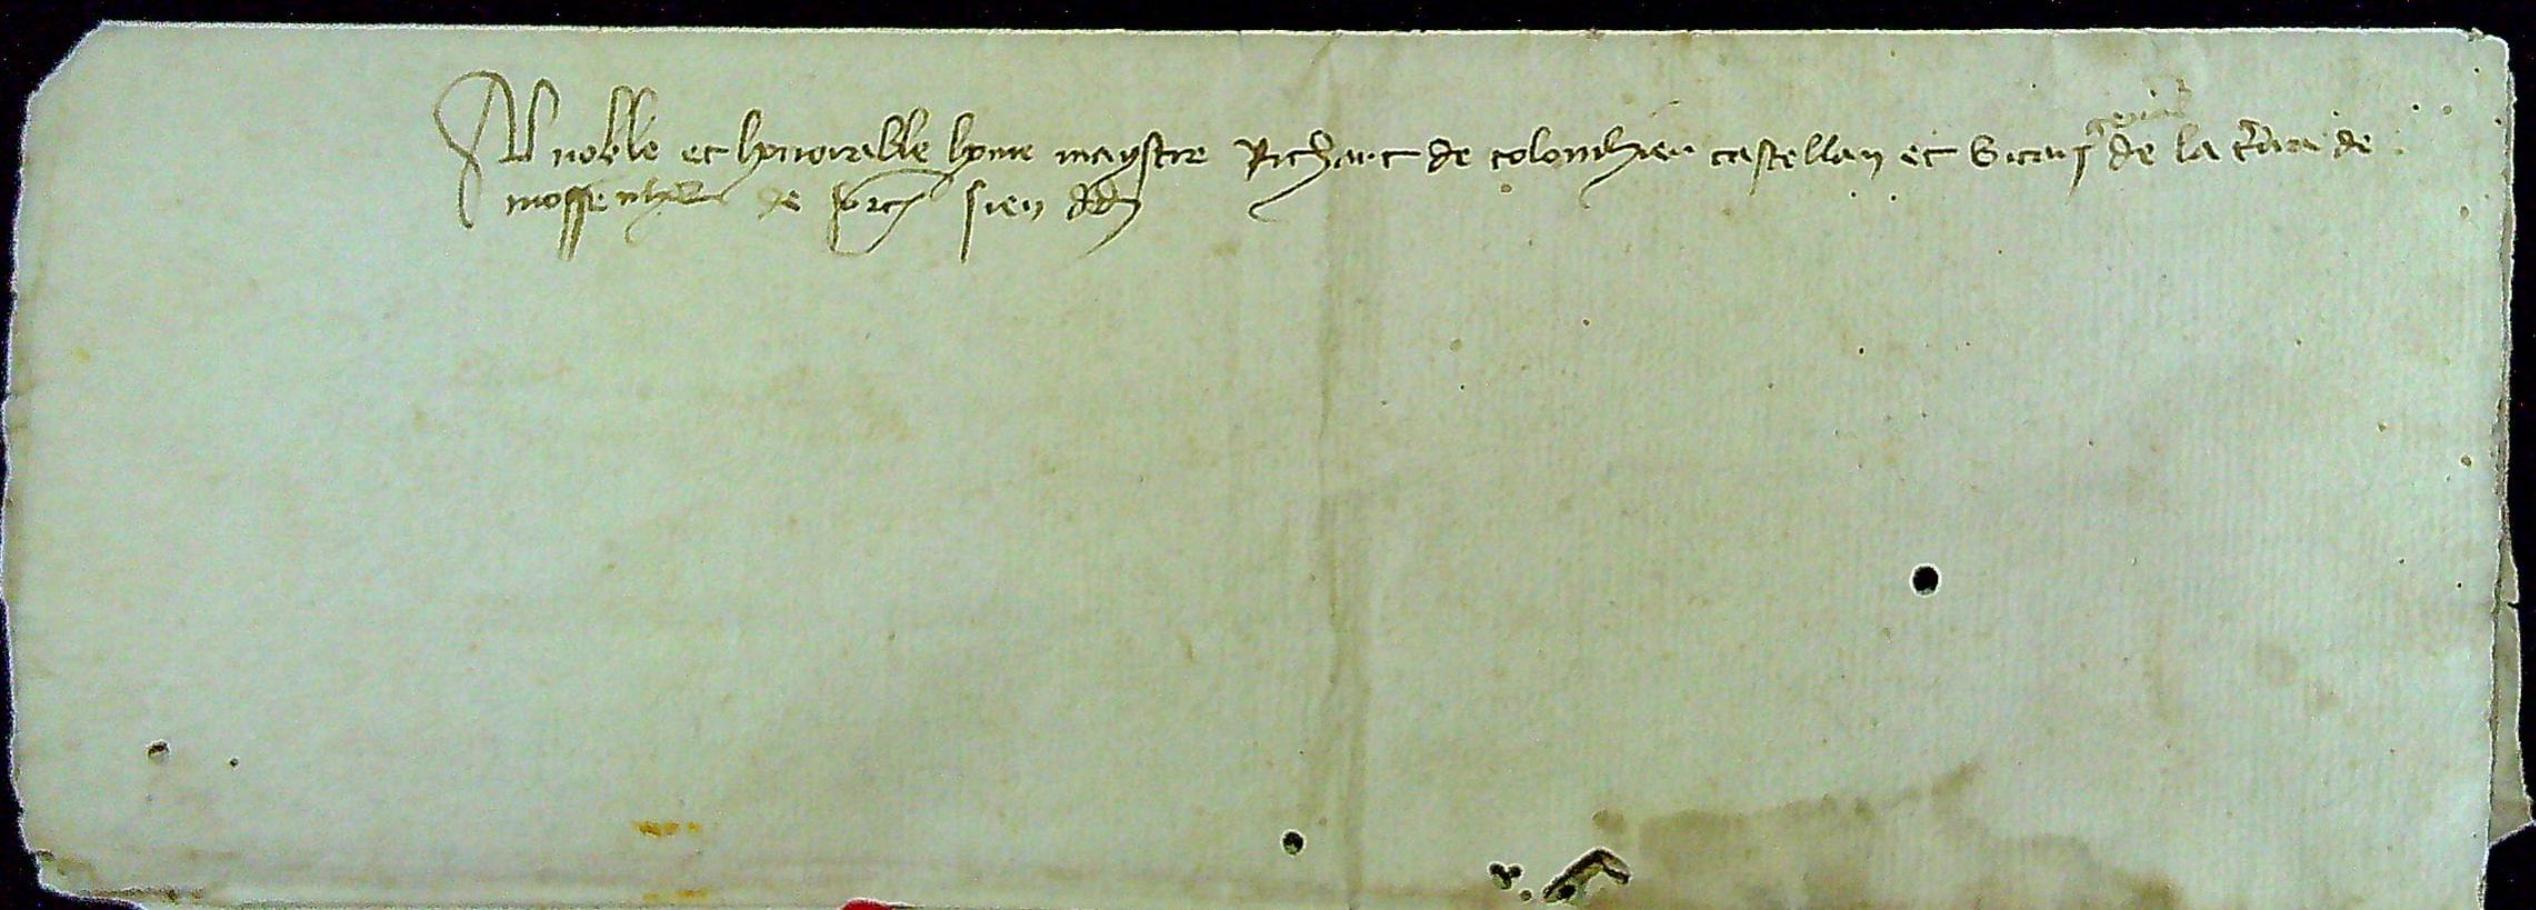 Al noble et honorable home maystre Richart de colonbier castellan et vicari de la t̄ra de
mossenher de sien